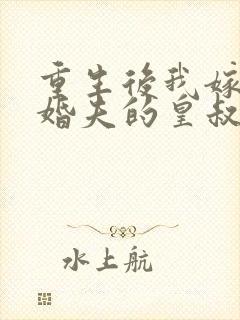 重生後我嫁
婚夫的皇叔
水上航